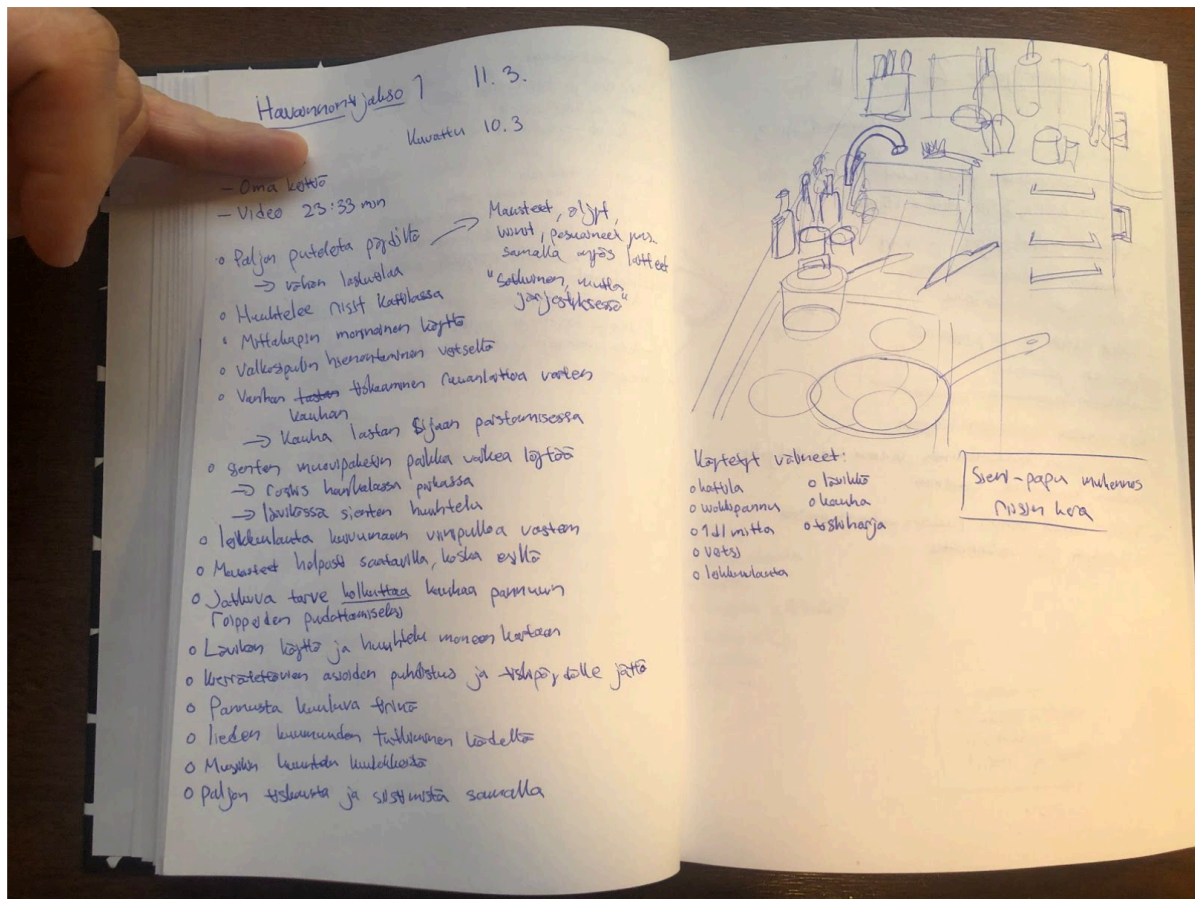 Havainnointijakso 1 11.3.
Kuvattu 10.3
- Oma keittiö
- Video 23:33 min
o Paljon purkkeja pöydillä → Mausteet, öljyt,
→ vähän laskutilaa
viinit, pesuaineet jne.
samalla myös laitteet
"Sotkuinen, mutta
järjestyksessä"
o Huuhtelee riisit kattilassa
o Mittakupin moninainen käyttö
o Valkosipulin hienontaminen veitsellä
o Vanhan tiskaaminen ruuanlaittoa varten
kauhan
→ Kauha lastan sijaan paistamisessa
o Sienten muovipaketin paikka vaikea löytää
→ roskis hankalassa paikassa
→ lävikössä sienten huuhtelu
o leikkuulauta kuivumaan viinipulloa vasten
o Mausteet helposti saatavilla, koska esillä
o Jatkuva tarve kolkuttaa kauhaa pannuun
roippeiden pudottamiseksi
o Lävikön käyttö ja huuhtelu moneen kertaan
o kierrätettävien asioiden puhdistus ja tiskipöydälle jättö
o Pannusta kuuluva tirinä
o lieden kuumuuden tutkiminen kädellä
o Musiikin kuuntelu kuulokkeista
o Paljon tiskausta ja siistimistä samalla
Käytetyt välineet:
o kattila
o wokkipannu
o 1 dl mitta
o veitsi
o leikkuulauta
o lävikkö
o kauha
o tiskiharja
Sieni-papu muhennos
riisin kera